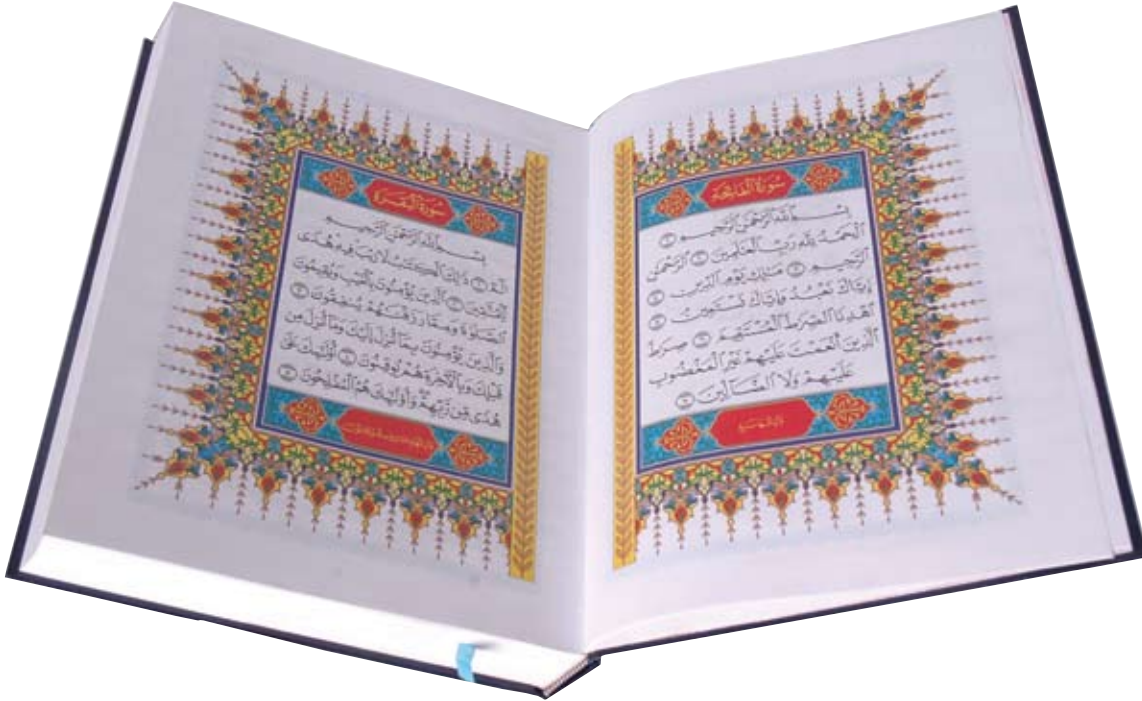 سُورَةُ الفَاتِحَةِ
بِسْمِ ٱللَّهِ ٱلرَّحْمَٰنِ ٱلرَّحِيمِ
ٱلْحَمْدُ لِلَّهِ رَبِّ ٱلْعَٰلَمِينَ ٱلرَّحْمَٰنِ
ٱلرَّحِيمِ مَٰلِكِ يَوْمِ ٱلدِّينِ
إِيَّاكَ نَعْبُدُ وَإِيَّاكَ نَسْتَعِينُ
ٱهْدِنَا ٱلصِّرَٰطَ ٱلْمُسْتَقِيمَ صِرَٰطَ
ٱلَّذِينَ أَنْعَمْتَ عَلَيْهِمْ غَيْرِ ٱلْمَغْضُوبِ
عَلَيْهِمْ وَلَا ٱلضَّآلِّينَ
سُورَةُ البَقَرَةِ
بِسْمِ ٱللَّهِ ٱلرَّحْمَٰنِ ٱلرَّحِيمِ
الٓمٓ ذَٰلِكَ ٱلْكِتَٰبُ لَا رَيْبَ فِيهِ هُدًى
لِّلْمُتَّقِينَ ٱلَّذِينَ يُؤْمِنُونَ بِٱلْغَيْبِ وَيُقِيمُونَ
ٱلصَّلَوٰةَ وَمِمَّا رَزَقْنَٰهُمْ يُنفِقُونَ
وَٱلَّذِينَ يُؤْمِنُونَ بِمَآ أُنزِلَ إِلَيْكَ وَمَآ أُنزِلَ مِن
قَبْلِكَ وَبِٱلْءَاخِرَةِ هُمْ يُوقِنُونَ أُو۟لَٰٓئِكَ عَلَىٰ
هُدًى مِّن رَّبِّهِمْ وَأُو۟لَٰٓئِكَ هُمُ ٱلْمُفْلِحُونَ